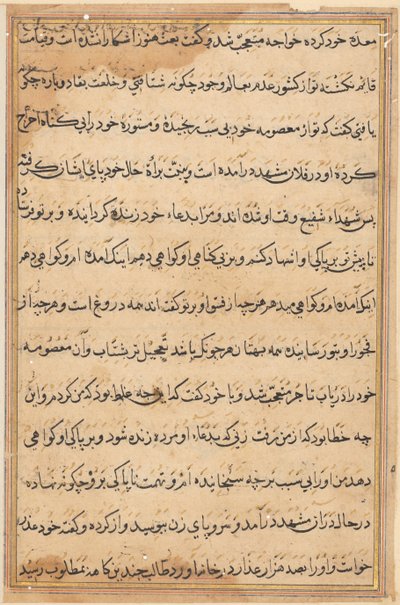 معدهٔ خود کرده خواجه متعجب شد و گفت بعث هنوز اشکارا نشده است و قیامت
قائم نکشته تو از کشور عدم بعالم وجود چکونه شتافتی و خلعت بقا دوباره چکونه
یافتی گفت که تو از معصومه خود بی سبب رنجیده و مستورهٔ خود را بی کناه اخراج
کردهٔ او در فلان مشهد درآمده است و بجهت براهٔ حال خود پای ایشان گرفته
پس شهداء شفیع وقت او شده اند و مرا بدعاء خود زنده کردانیده و بر تو فرستاده
تا پیش تو بر پاکی او اشهاد کنم و بر بی کناهی او کواهی دهم اینک آمده ام و کواهی میدهم
اینک آمده ام و کواهی میدهم هر چه از فتو او بر تو گفته اند همه دروغ است و هر چه از
فجور او بتو رسانیده همه بهتان هر چونک باشد تعجیل تر بشتاب و آن معصومه
خود را دریاب تاجر متعجب شد و با خود گفت که این چه غلط بود که من کردم و این
چه خطا بود که از من رفت زنی که بدعاء او مرده زنده شود و بر پاکی او کواهی
دهد من او را بی سبب بر چه سنجانیده ام و تهمت ناپاکی بر وی چکونه نهاده
در حال در آن مشهد درآمد و سر و پای زن ببوسید و از کرده و گفته خود عذر
خواست و او را بصد هزار عذار در خانه آورد طالب چندین کاهن بمطلوب رسید